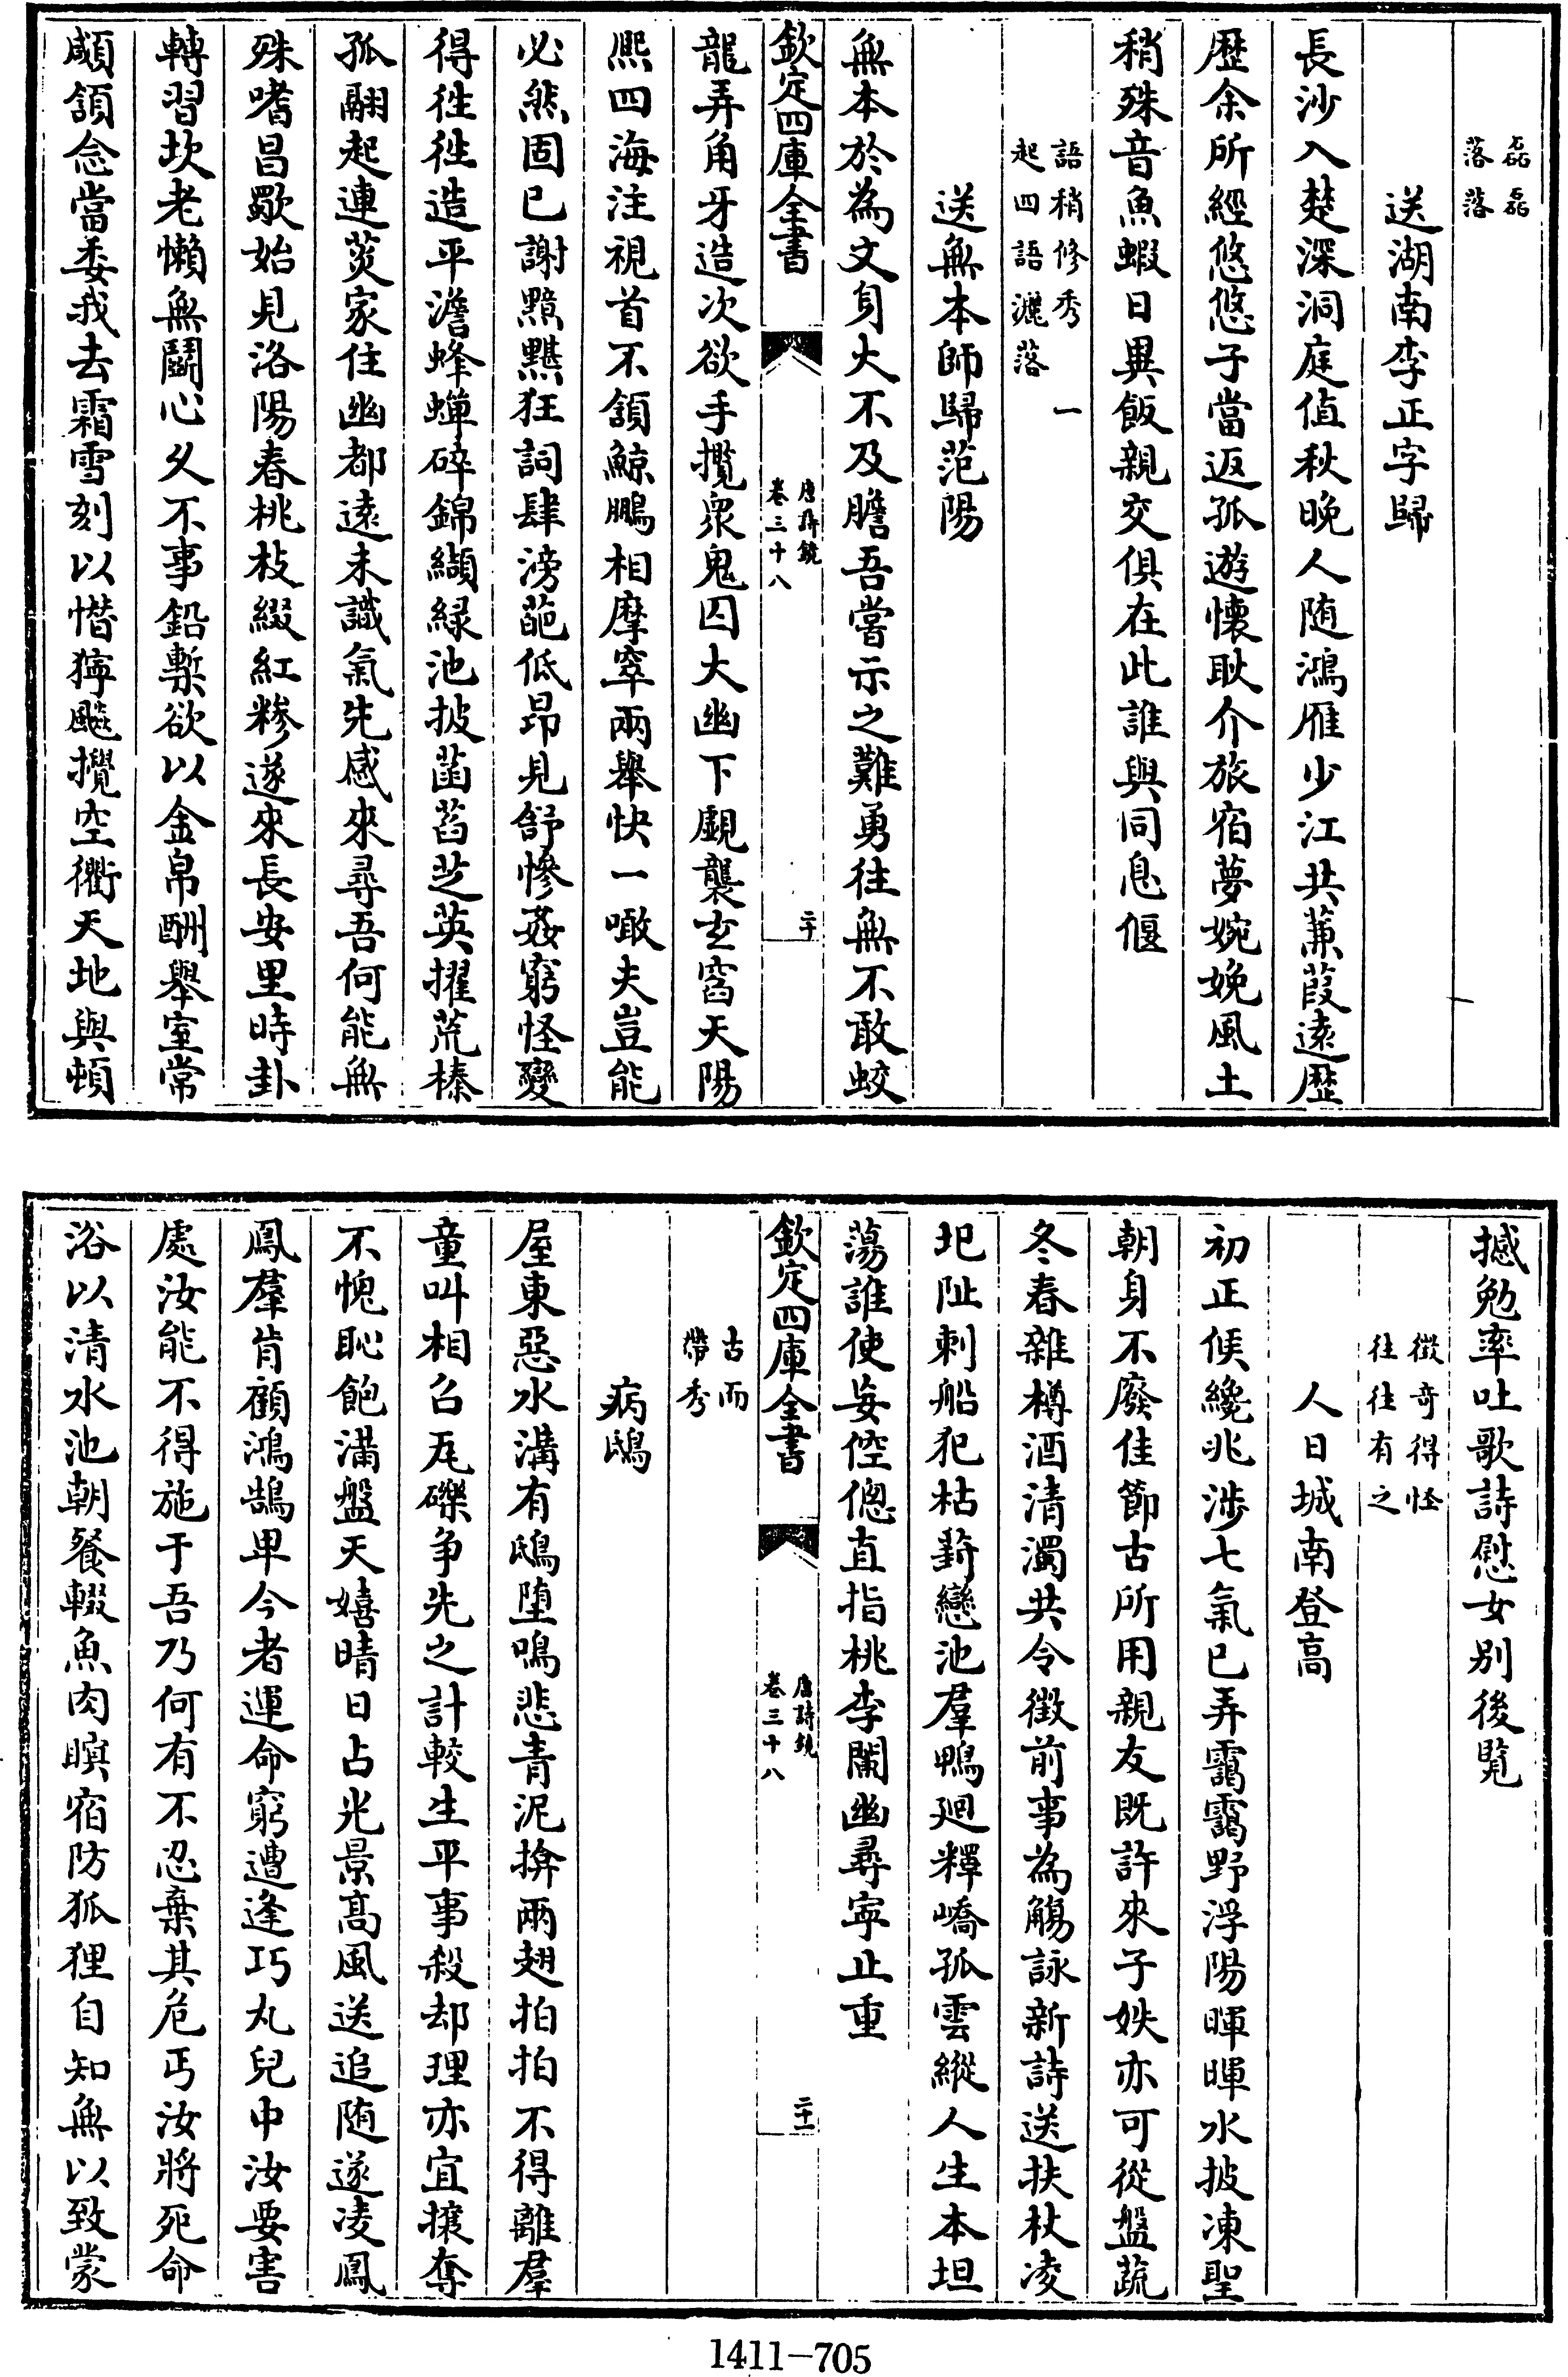 磊磊
落落
送湖南李正字歸
長沙入楚深洞庭值秋晚人随鴻雁少江共蒹葭遠歷
歷余所經悠悠子當返孤遊懷耿介旅宿夢婉娩風土
稍殊音魚蝦日異飯親交俱在此誰與同息偃
語稍修秀一
起四語灑落
送無本師歸范陽
無本於為文身大不及膽吾嘗示之難勇往無不敢蛟
欽定四庫全書
唐詩鏡
卷三十八
二十
龍弄角牙造次欲手攬衆鬼囚大幽下覷襲玄窞天陽
熈四海注視首不頷鯨鵬相摩窣兩舉快一噉夫豈能
必然固已謝黯黮狂詞肆滂葩低昂見舒慘姦窮怪變
得徃徃造平澹蜂蟬碎錦纈緑池披菡萏芝英擢荒榛
孤翮起連菼家住幽都遠未識氣先感來尋吾何能無
殊嗜昌歜始見洛陽春桃枝綴紅糝遂來長安里時卦
轉習坎老懶無鬭心乆不事鉛槧欲以金帛酬舉室常
顑頷念當委我去霜雪刻以憯獰飈攪空衢天地與頓
撼勉率吐歌詩慰女别後覧
徵奇得怪
往往有之
人日城南登高
初正候纔兆涉七氣已弄靄靄野浮陽暉暉水披凍聖
朝身不廢佳節古所用親友既許來子姪亦可從盤蔬
冬春雜樽酒清濁共令徴前事為觴詠新詩送扶杖凌
圯阯刺船犯枯葑戀池羣鴨廻釋嶠孤雲縱人生本坦
蕩誰使妄倥偬直指桃李闌幽尋寧止重
欽定四庫全書
唐詩鏡
卷三十八
二十一
古而
帶秀
病鴟
屋東惡水溝有鴟墮鳴悲青泥揜兩翅拍拍不得離羣
童叫相召瓦礫争先之計較生平事殺却理亦宜攘奪
不愧恥飽滿盤天嬉晴日占光景髙風送追随遂凌鳳
鳳羣肯顧鴻鵠卑今者運命窮遭逢巧丸兒中汝要害
處汝能不得施于吾乃何有不忍棄其危丐汝將死命
浴以清水池朝餐輟魚肉暝宿防狐狸自知無以致蒙
1411-705